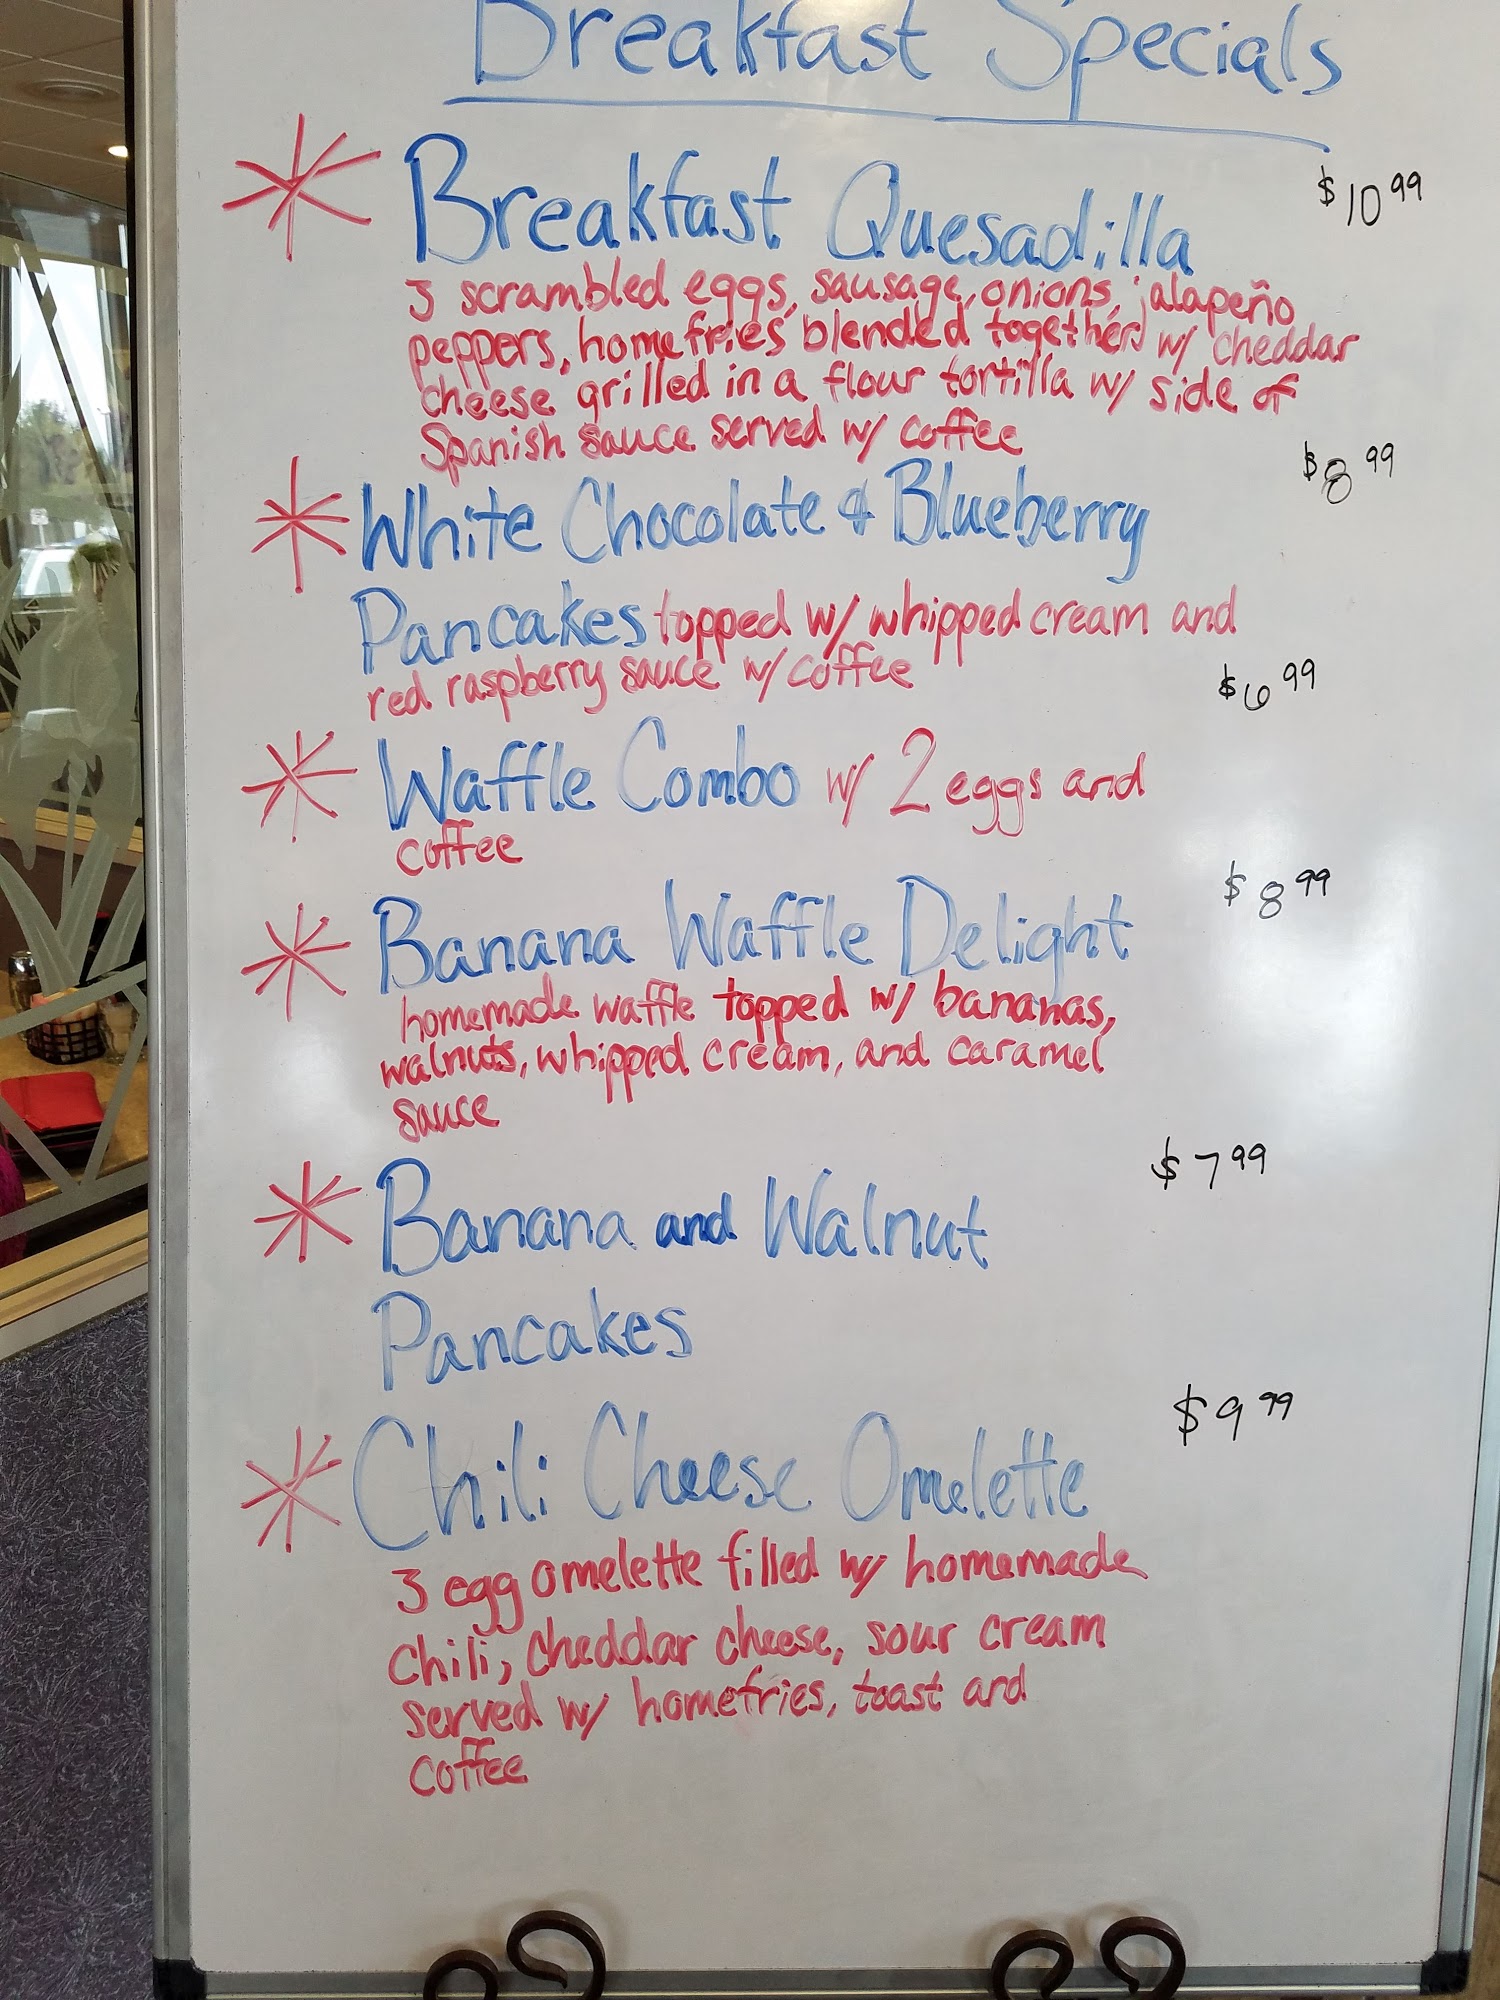 Breakfast Specials
Breakfast Quesadilla $10.99
3 scrambled eggs, sausage, onions, jalapeño
peppers, homefries blended together w/ cheddar
cheese grilled in a flour tortilla w/ side of
Spanish sauce served w/ coffee
White Chocolate & Blueberry $8.99
Pancakes topped w/ whipped cream and
red raspberry sauce w/ coffee
Waffle Combo w/ 2 eggs and $6.99
coffee
Banana Waffle Delight $8.99
homemade waffle topped w/ bananas,
walnuts, whipped cream, and caramel
sauce
Banana and Walnut $7.99
Pancakes
Chili Cheese Omelette $9.99
3 egg omelette filled w/ homemade
chili, cheddar cheese, sour cream
served w/ homefries, toast and
coffee